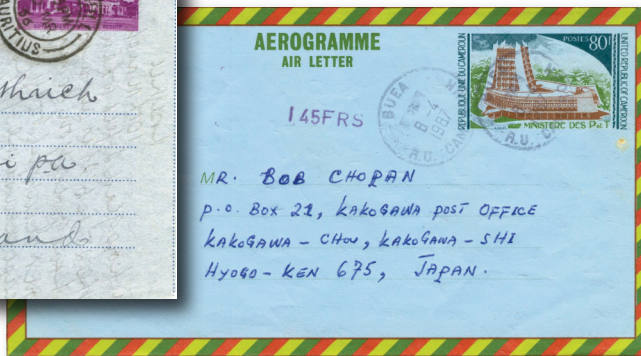 AURITIUS
i pa
AEROGRAMME
AIR LETTER
145FRS
BUEA
8-4
R.U. CAM
R.U.
REPUBLIQUE UNIE DU CAMEROUN
POSTES 80F
UNITED REPUBLIC OF CAMEROON
MINISTERE DES P et T
MR. BOB CHORAN
P.O. BOX 21, KAKOGAWA POST OFFICE
KAKOGAWA - CHOU, KAKOGAWA - SHI
HYOGO - KEN 675, JAPAN.